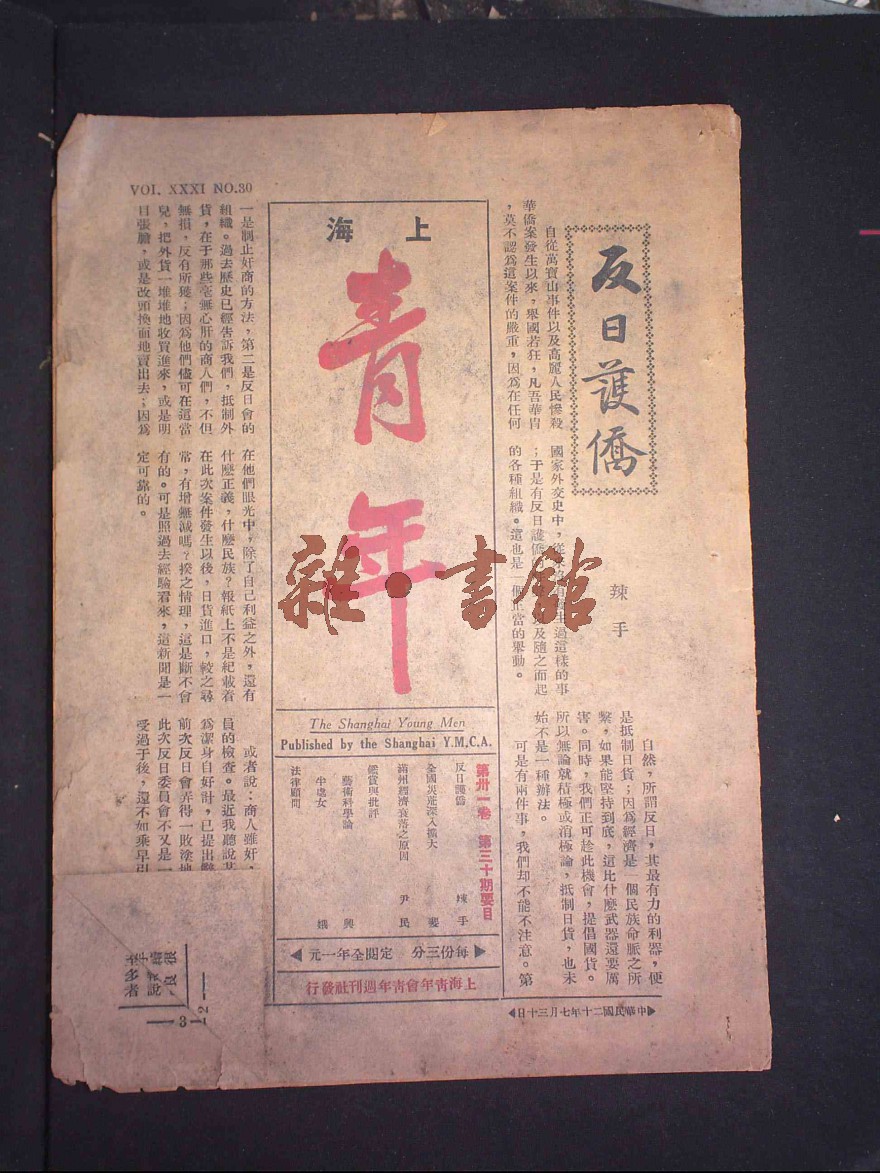 VOL. XXXI NO.30
反日護僑
辣手
自從萬寶山事件以及高麗人民慘殺
華僑案發生以來，舉國若狂，凡吾華胄
，莫不認爲這案件的嚴重，因爲在任何
國家外交史中，
過這樣的事
；于是有反日護僑
及隨之而起
的各種組織。這也是一個正當的舉動。
自然，所謂反日，其最有力的利器，便
是抵制日貨；因爲經濟是一個民族命脈之所
繫，如果能堅持到底，這比什麽武器還要厲
害。同時，我們正可趁此機會，提倡國貨。
所以無論就積極或消極論，抵制日貨，也未
始不是一種辦法。
可是有兩件事，我們却不能不注意。第
上海
青年
The Shanghai Young Men
Published by the Shanghai Y.M.C.A.
第卅一卷 第三十期要目
反日護僑 辣手
全國災荒深入擴大
滿州經濟衰落之原因 尹民
鑑賞與批評
藝術科學論 興
牛處女 娥
法律顧問
每份三分 定閱全年一元
上海青年會青年週刊社發行
一是制止奸商的方法，第二是反日會的
組織。過去歷史已經告訴我們，抵制外
貨，在于那些毫無心肝的商人們，不但
無損，反有所獲；因爲他們儘可在這當
兒，把外貨一堆堆地收買進來，或是明
目張膽，或是改頭換面地賣出去；因爲
在他們眼光中，除了自己利益之外，還有
什麽正義，什麽民族？報紙上不是紀載着
在此次案件發生以後，日貨進口，較之尋
常，有增無減嗎？揆之情理，這是斷不會
有的。可是照過去經驗看來，這新聞是一
定可靠的。
或者說：商人雖奸，
員的檢查。最近我聽說
爲潔身自好計，已提出
前次反日會弄得一敗塗地
此次反日委員會不又是一
受過于後，還不如乘早引
中華民國二十年七月三十日
雜·書館